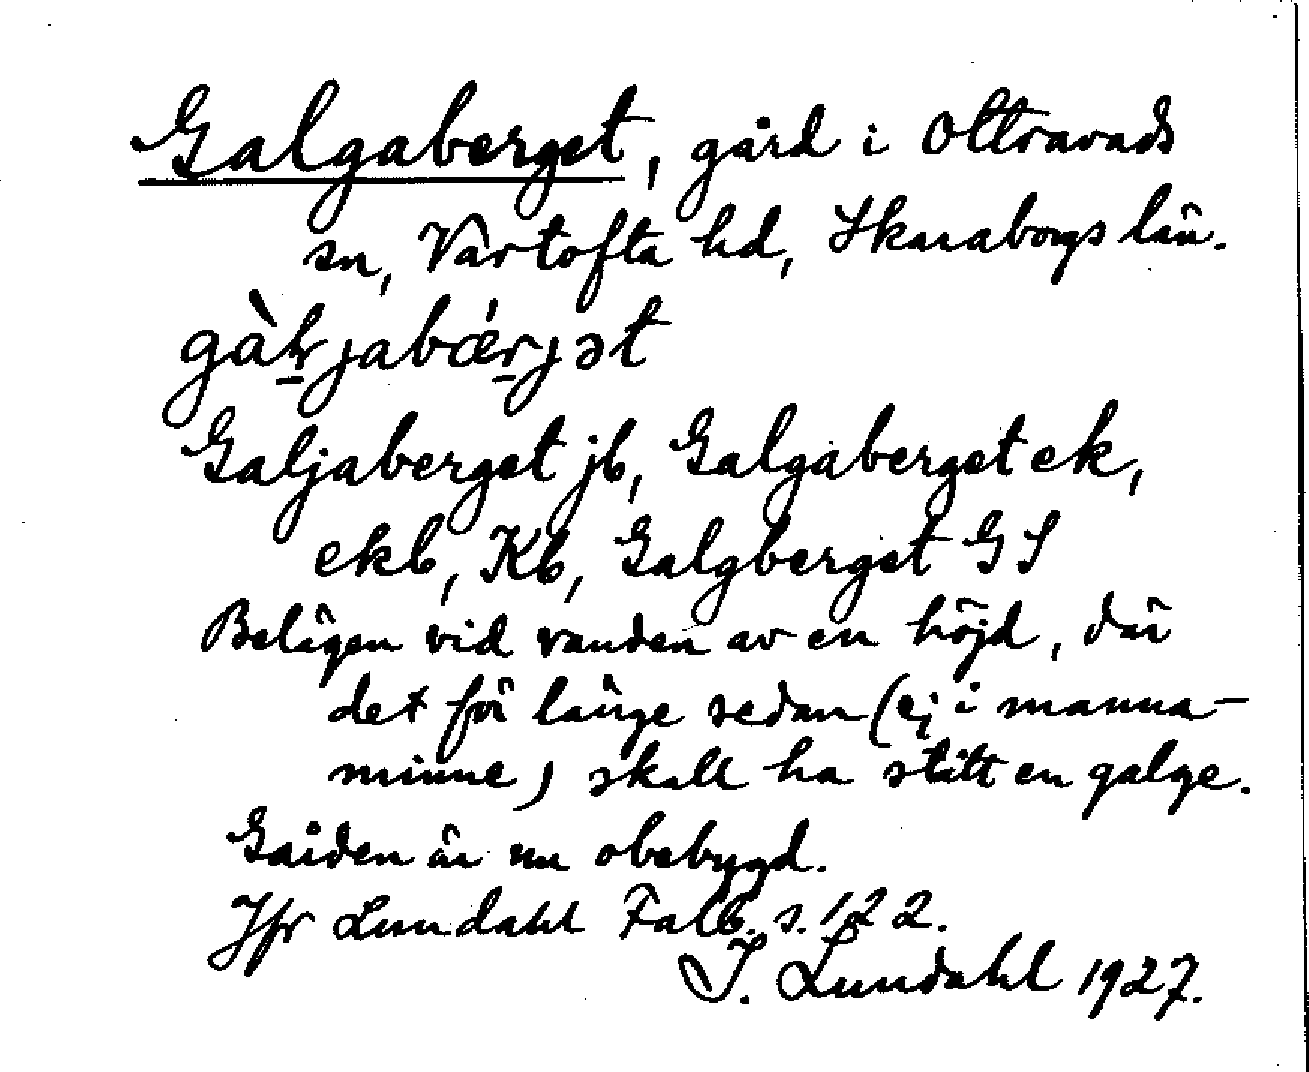 Galgaberget, gård i Ottravads
sn, Vartofta hd, Skaraborgs län.
gàl̠jabǽr̠jət
Galjaberget jb, Galgaberget ek,
ekb, Kb, Galgberget GS
Belägen vid randen av en höjd, där
det för länge sedan (ej i manna-
minne) skall ha stått en galge.
Gården är nu obebygd.
Jfr Lundahl Falb. s. 122.
I. Lundahl 1927.